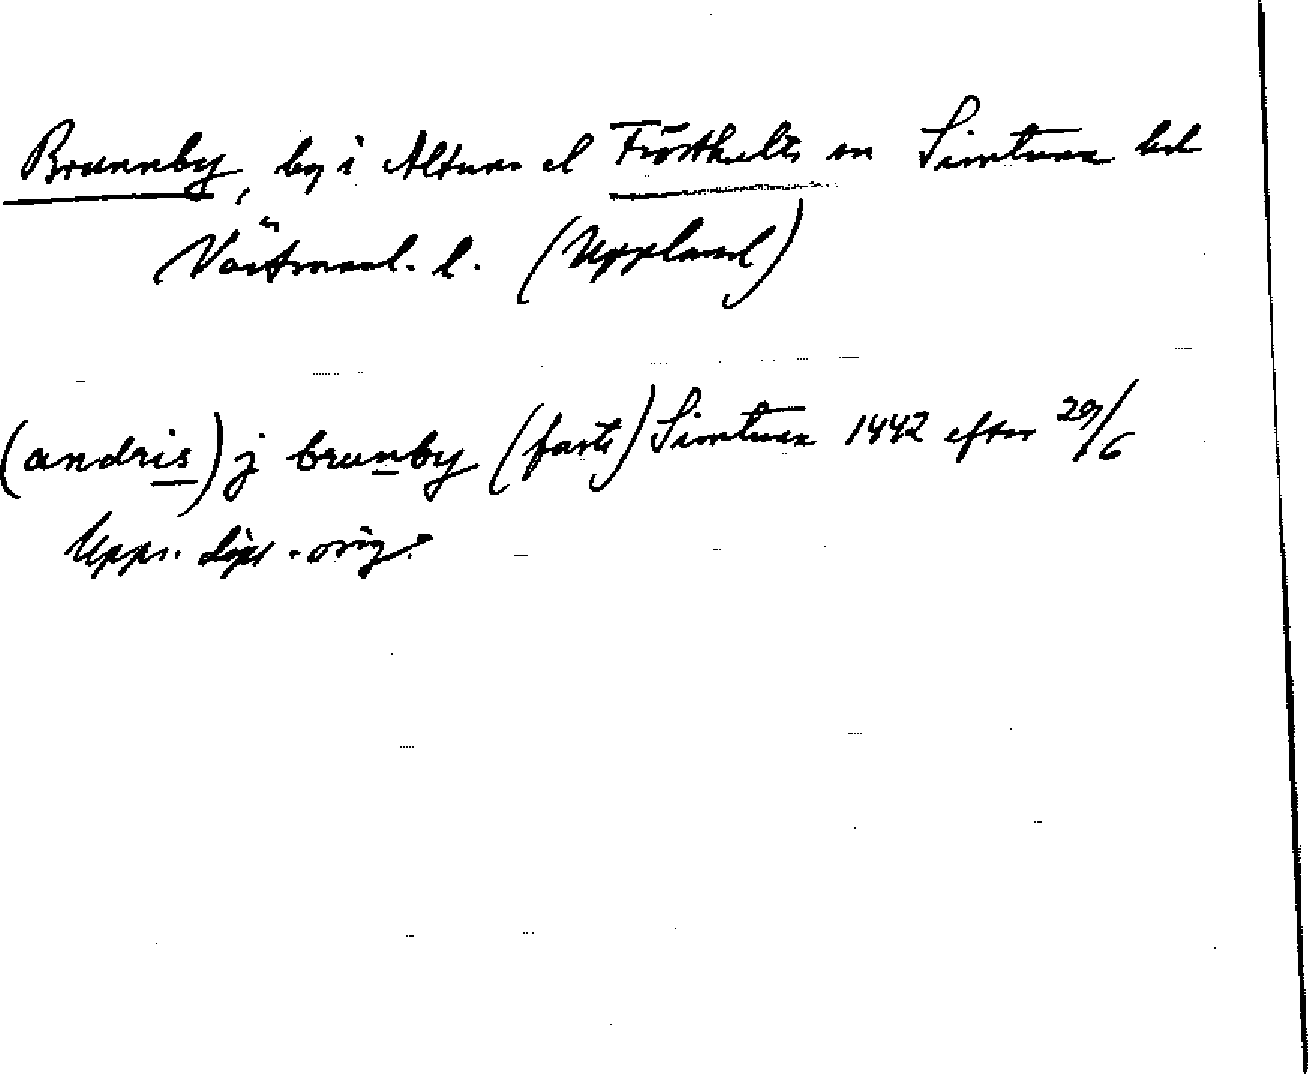 Brunnby, by i Altuna el Fröstholts sn Simtuna hd
Västmanl. l. (Uppland)
(andris) j brunby (faste) Simtuna 1442 efter 29/6
Upps. dipl. orig.